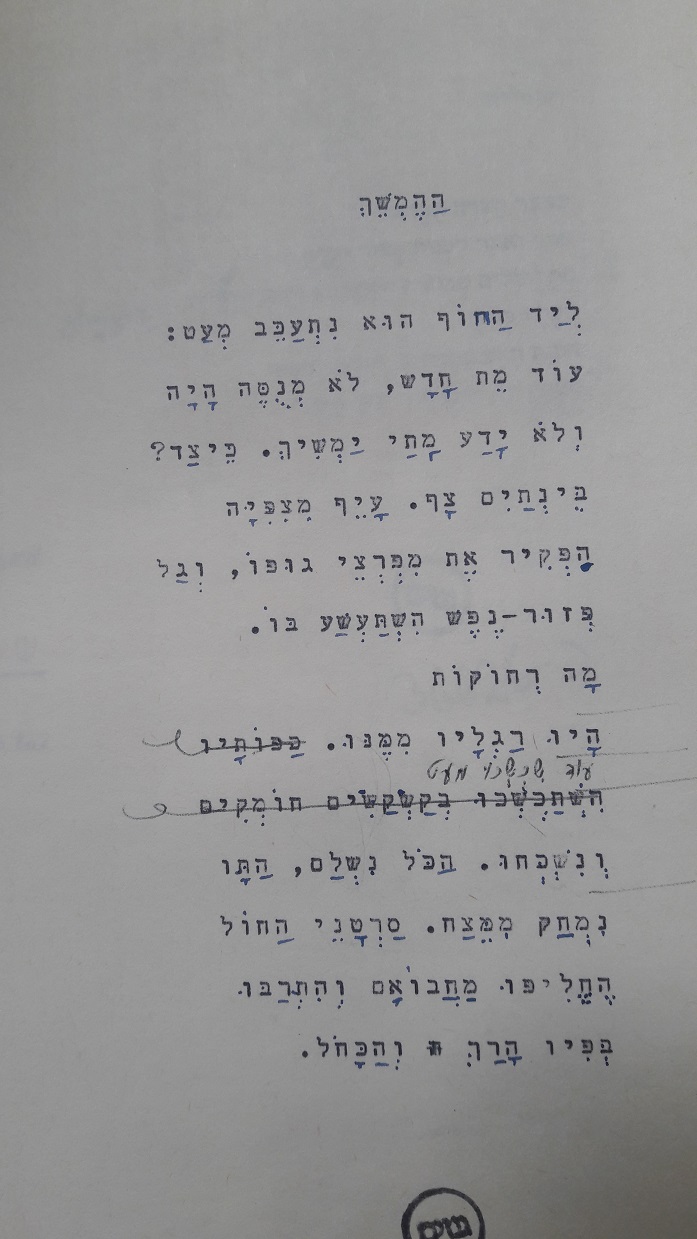 הַהֶמְשֵׁךְ
לְיַד הַחוֹף הוּא נִתְעַכֵּב מְעַט:
עוֹד מֵת חָדָשׁ, לֹא מְנֻסֶּה הָיָה
וְלֹא יָדַע מָתַי יַמְשִׁיךְ. כֵּיצַד?
בֵּינְתַיִם צָף. עָיֵף מִצִּפִּיָּה
הִפְקִיר אֶת מִפְרְצֵי גוּפוֹ, וְגַל
פְּזוּר-נֶפֶשׁ הִשְׁתַּעְשַׁע בּוֹ.
מָה רְחוֹקוֹת
הָיוּ רַגְלָיו מִמֶּנּוּ. כַּפּוֹתָיו
עוֹד שִׁכְשְׁכוּ מעט
הִשְׁתַּכְשְׁכוּ בְּקַשְׂקַשִּׂים חוֹמְקִים
וְנִשְׁכְּחוּ. הַכֹּל נִשְׁלַם, הַתָּו
נִמְחַק מִמֵּצַח. סַרְטָנֵי הַחוֹל
הֶחֱלִיפוּ מַחֲבוֹאָם וְהִתְרַבּוּ
בְּפִיו הָרַךְ וְהַכָּחֹל.